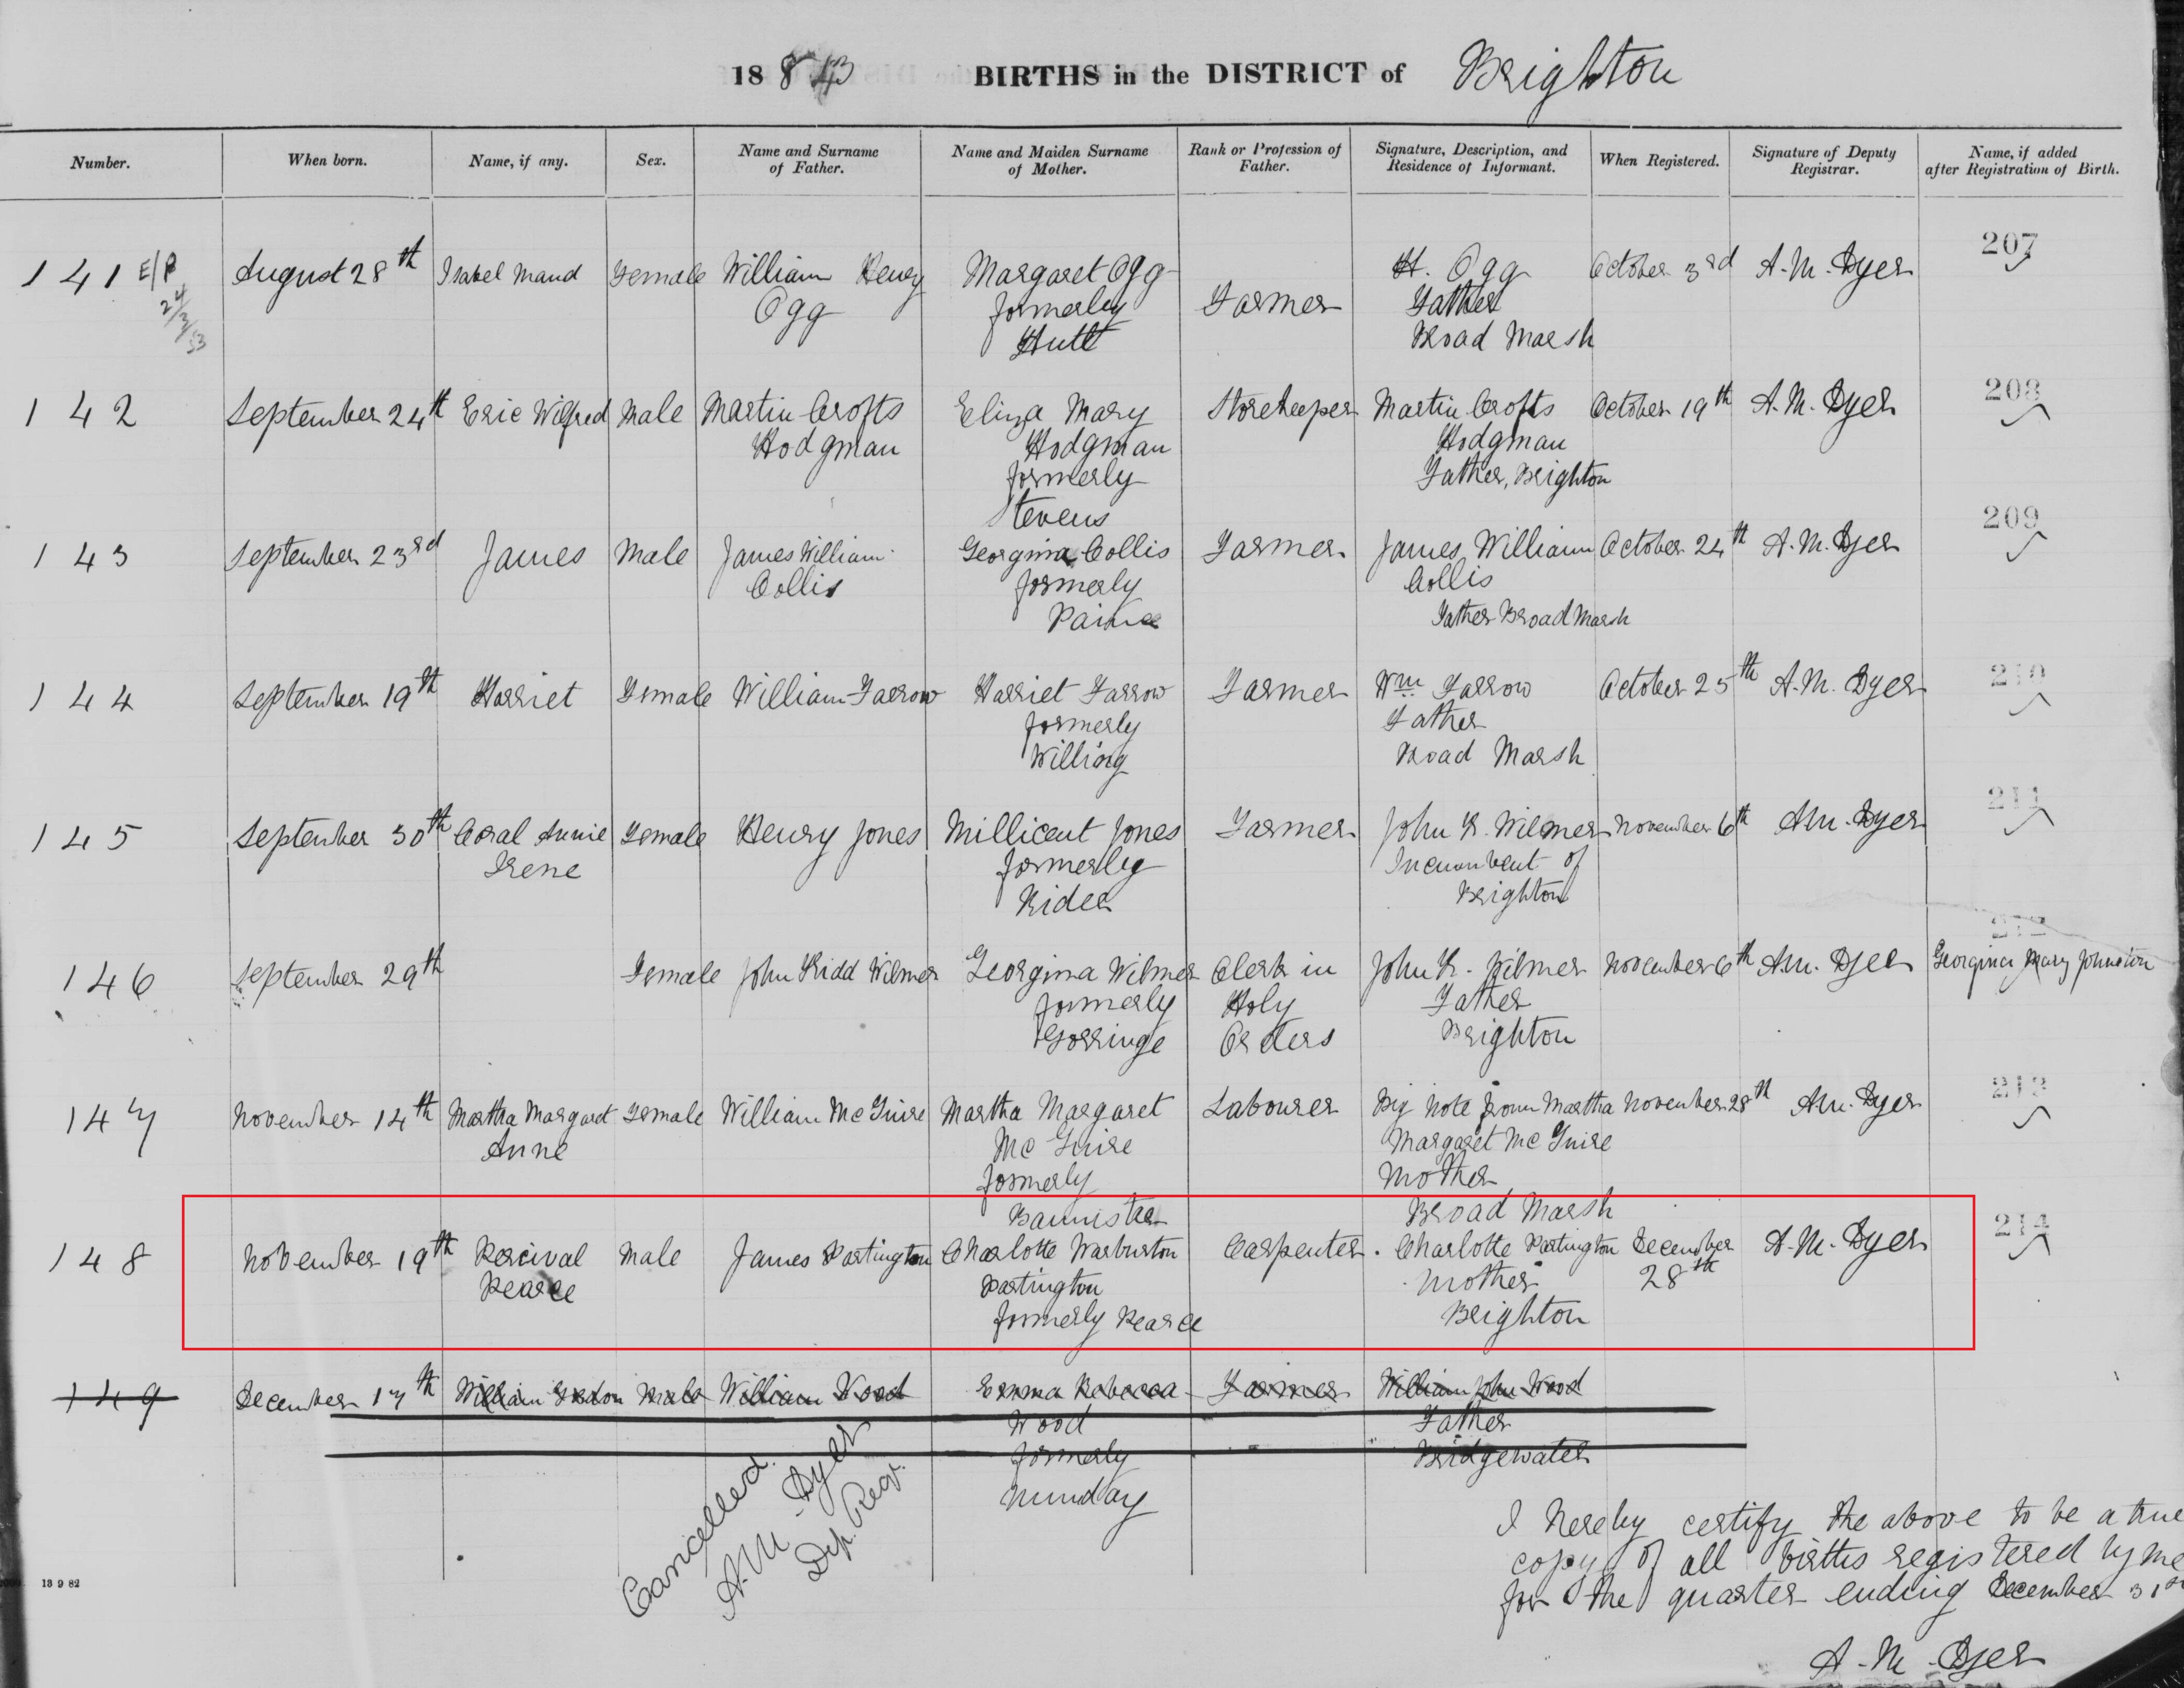 1883 BIRTHS in the DISTRICT of Brighton
Number. When born. Name, if any. Sex. Name and Surname of Father. Name and Maiden Surname of Mother. Rank or Profession of Father. Signature, Description, and Residence of Informant. When Registered. Signature of Deputy Registrar. Name, if added after Registration of Birth.
207
141 E/P August 28th Isabel Maud Female William Henry Margaret Ogg H. Ogg October 3rd A. M. Dyer
24/3/53 Ogg formerly Farmer Father
Hutt Broad Marsh
208
142 September 24th Eric Wilfred Male Martin Crofts Eliza Mary Storekeeper Martin Crofts October 19th A. M. Dyer
Hodgman Hodgman Hodgman
formerly Father, Brighton
Stevens
209
143 September 23rd James Male James William Georgina Collis Farmer James William October 24th A. M. Dyer
Collis formerly Collis
Paine Father Broad Marsh
210
144 September 19th Harriet Female William Farrow Harriet Farrow Farmer Wm Farrow October 25th A. M. Dyer
formerly Father
Willing Broad Marsh
211
145 September 30th Coral Annie Female Henry Jones Millicent Jones Farmer John K. Wilmer November 6th A. M. Dyer
Irene formerly Incumbent of
Rider Brighton
212
146 September 29th Female John Kidd Wilmer Georgina Wilmer Clerk in John K. Wilmer November 6th A. M. Dyer Georgina Mary Johnston
formerly Holy Father
Gorringe Orders Brighton
213
147 November 14th Martha Margaret Female William Mc Guire Martha Margaret Labourer By Note from Martha November 28th A. M. Dyer
Anne Mc Guire Margaret Mc Guire
formerly Mother
Bannister Broad Marsh
214
148 November 19th Percival Male James Partington Charlotte Warburton Carpenter Charlotte Partington December A. M. Dyer
Pearce Partington Mother 28th
formerly Pearce Brighton
149 December 17th William Male William Wood Emma Rebecca Farmer William John Wood
Wood Father
formerly Bridgewater
Munday
Cancelled.
A. M. Dyer
Dep. Regr.
I hereby certify the above to be a true
copy of all births registered by me
for the quarter ending December 31st
A. M. Dyer
13 9 82